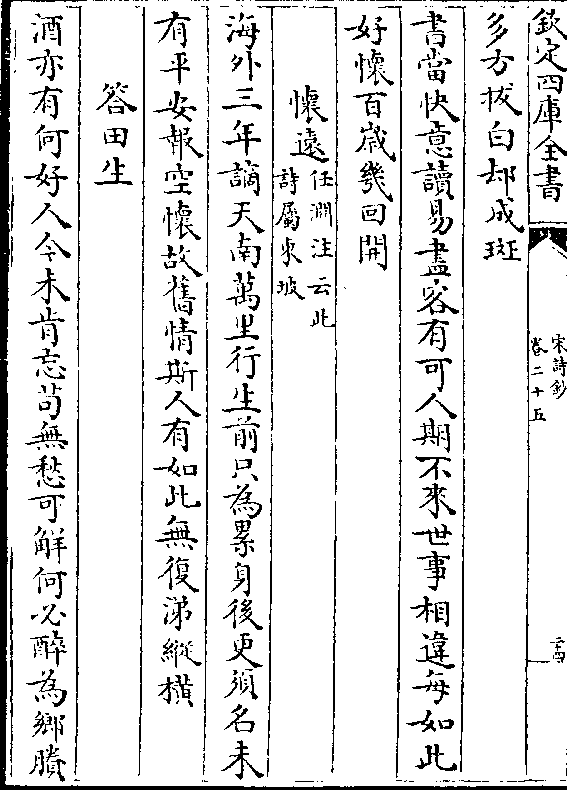 欽定四庫全書
宋詩鈔
卷二十五
二十四
多方拔白却成斑
書當快意讀易盡客有可人期不來世事相違每如此
好懷百歳幾回開
懷遠
任淵注云此
詩屬東坡
海外三年謫天南萬里行生前只為累身後更須名未
有平安報空懷故舊情斯人有如此無復涕縱橫
答田生
酒亦有何好人今未肯忘茍無愁可解何必醉為鄉賸